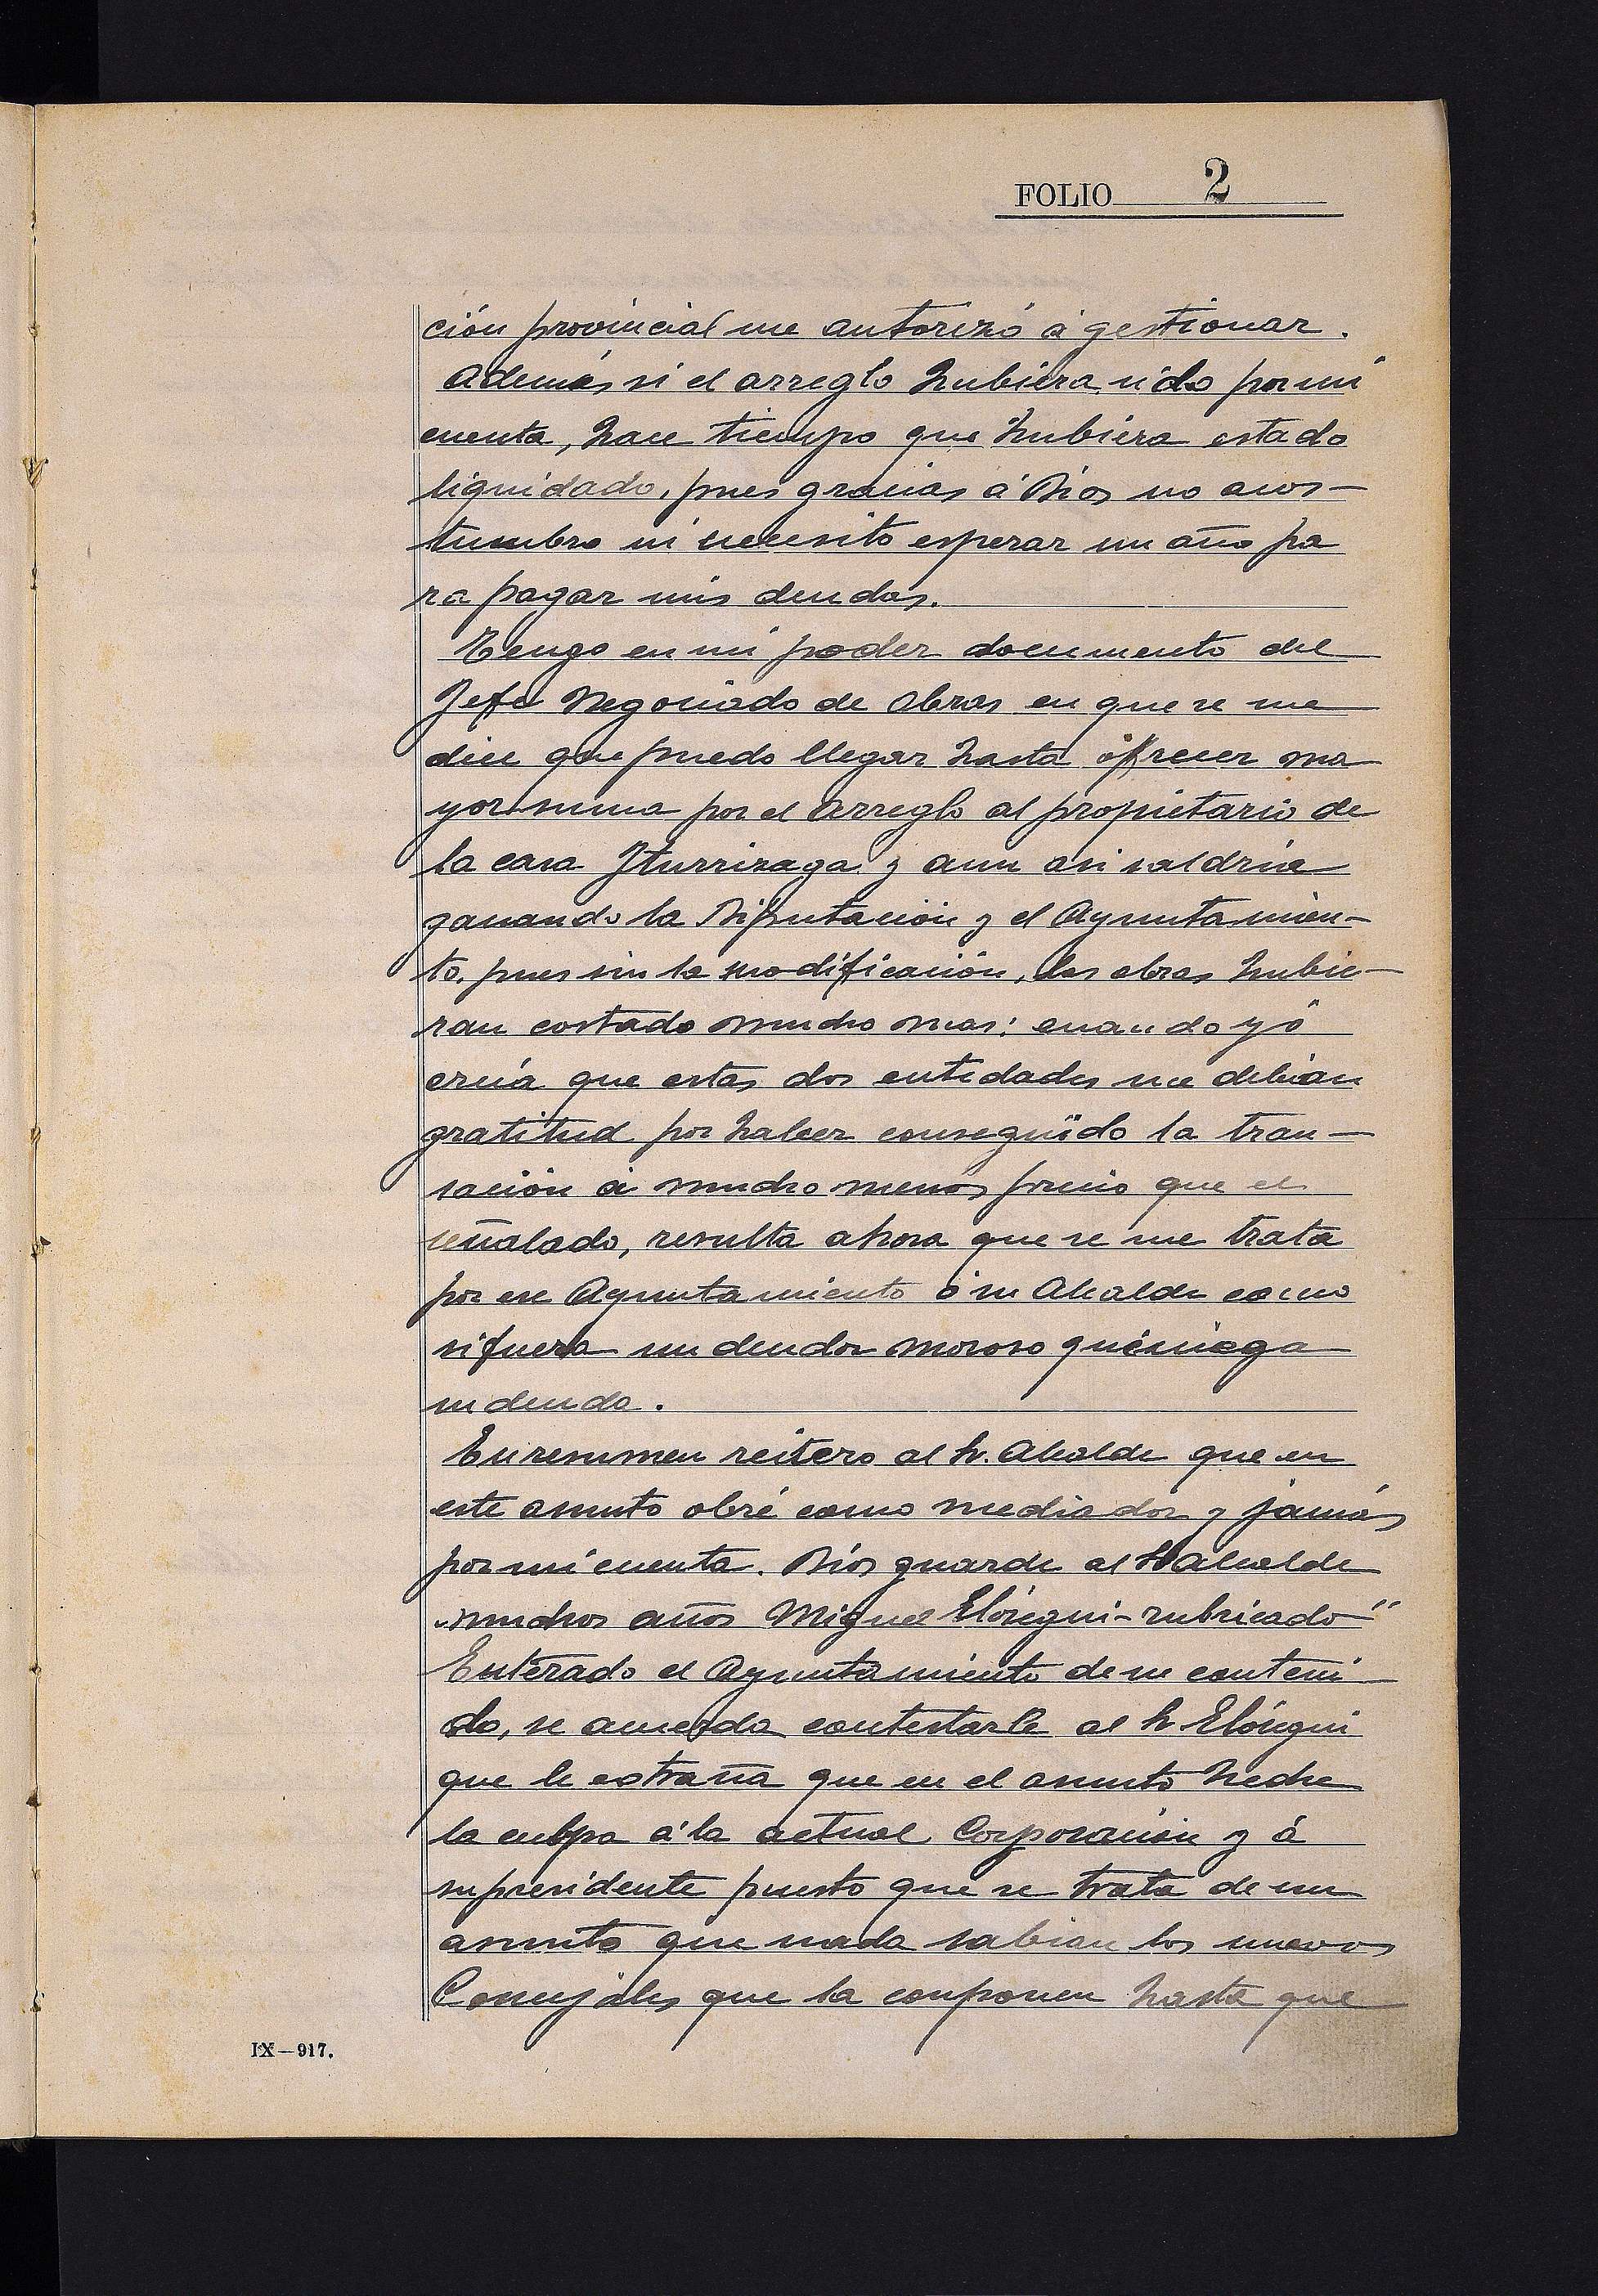 FOLIO 2
ción provincial me autorizó á gestionar.
Además si el arreglo hubiera sido por mi
cuenta, hace tiempo que hubiera estado
liquidado, pues gracias á Dios no acos-
tumbro ni necesito esperar un año pa
ra pagar mis deudas.
Tengo en mi poder documento del
Jefe Negociado de obras en que se me
dice que puedo llegar hasta ofrecer ma
yor suma por el arreglo al propietario de
la casa Iturrizaga y aun asi saldria
ganando la Diputación y el Ayuntamien-
to, pues sin la modificación, las obras hubie-
ran costado mucho mas: cuando yó
creía que estas dos entidades me debian
gratitud por haber conseguido la tran-
sación á mucho menos precio que el
señalado, resulta ahora que se me trata
por ese Ayuntamiento ó su Alcalde como
si fuera un deudor moroso que niega
su deuda.
En resumen reitero al Sr. Alcalde que en
este asunto obré como mediador y jamás
por mi cuenta. Dios guarde al Sr Alcalde
muchos años Miguel Elósegui-rubricado"
Enterado el Ayuntamiento de su conteni-
do, se acuerda contestarle al Sr Elósegui
que le estraña que en el asunto heche
la culpa á la actual Corporación y á
su presidente puesto que se trata de un
asunto que nada sabian los nuevos
Concejales que la conponen hasta que
IX-917.